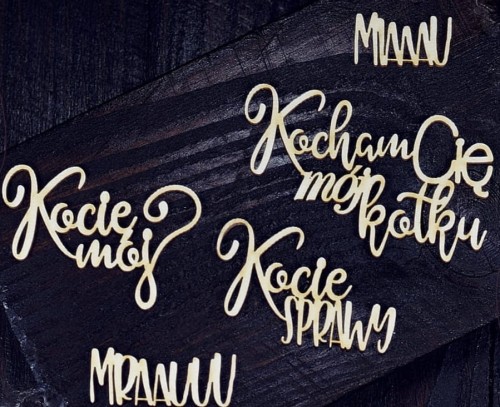 MIAAU
Kocham Cię
mój kotku
Kocie
mój
Kocie
SPRAWY
MRAAUUU